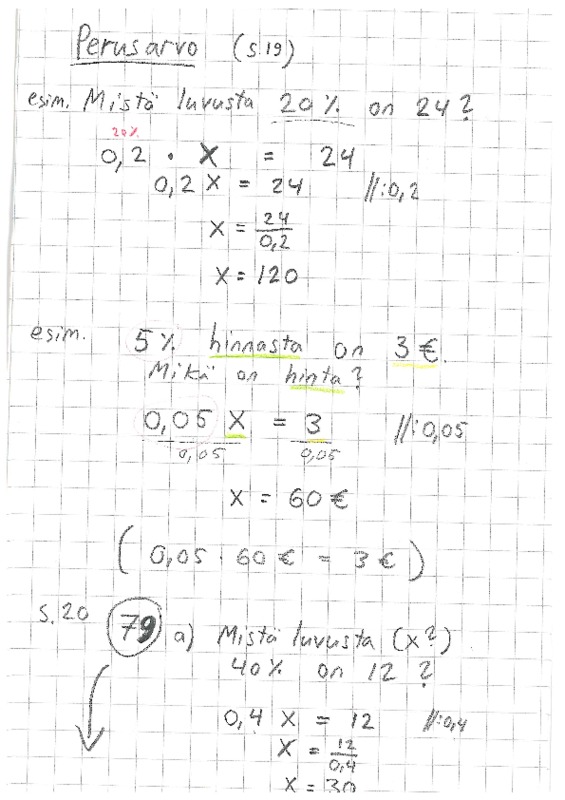 Perusarvo (s.19)
esim. Mistä luvusta 20% on 24?
20%
0,2 · X = 24
0,2 X = 24 //:0,2
X = 24/0,2
X = 120
esim. 5% hinnasta on 3 €.
Mikä on hinta?
0,05 X = 3 //:0,05
0,05 0,05
X = 60 €
(0,05 · 60 € = 3 €)
s.20 79 a) Mistä luvusta (x?)
40% on 12?
0,4 X = 12 //:0,4
X = 12/0,4
X = 30